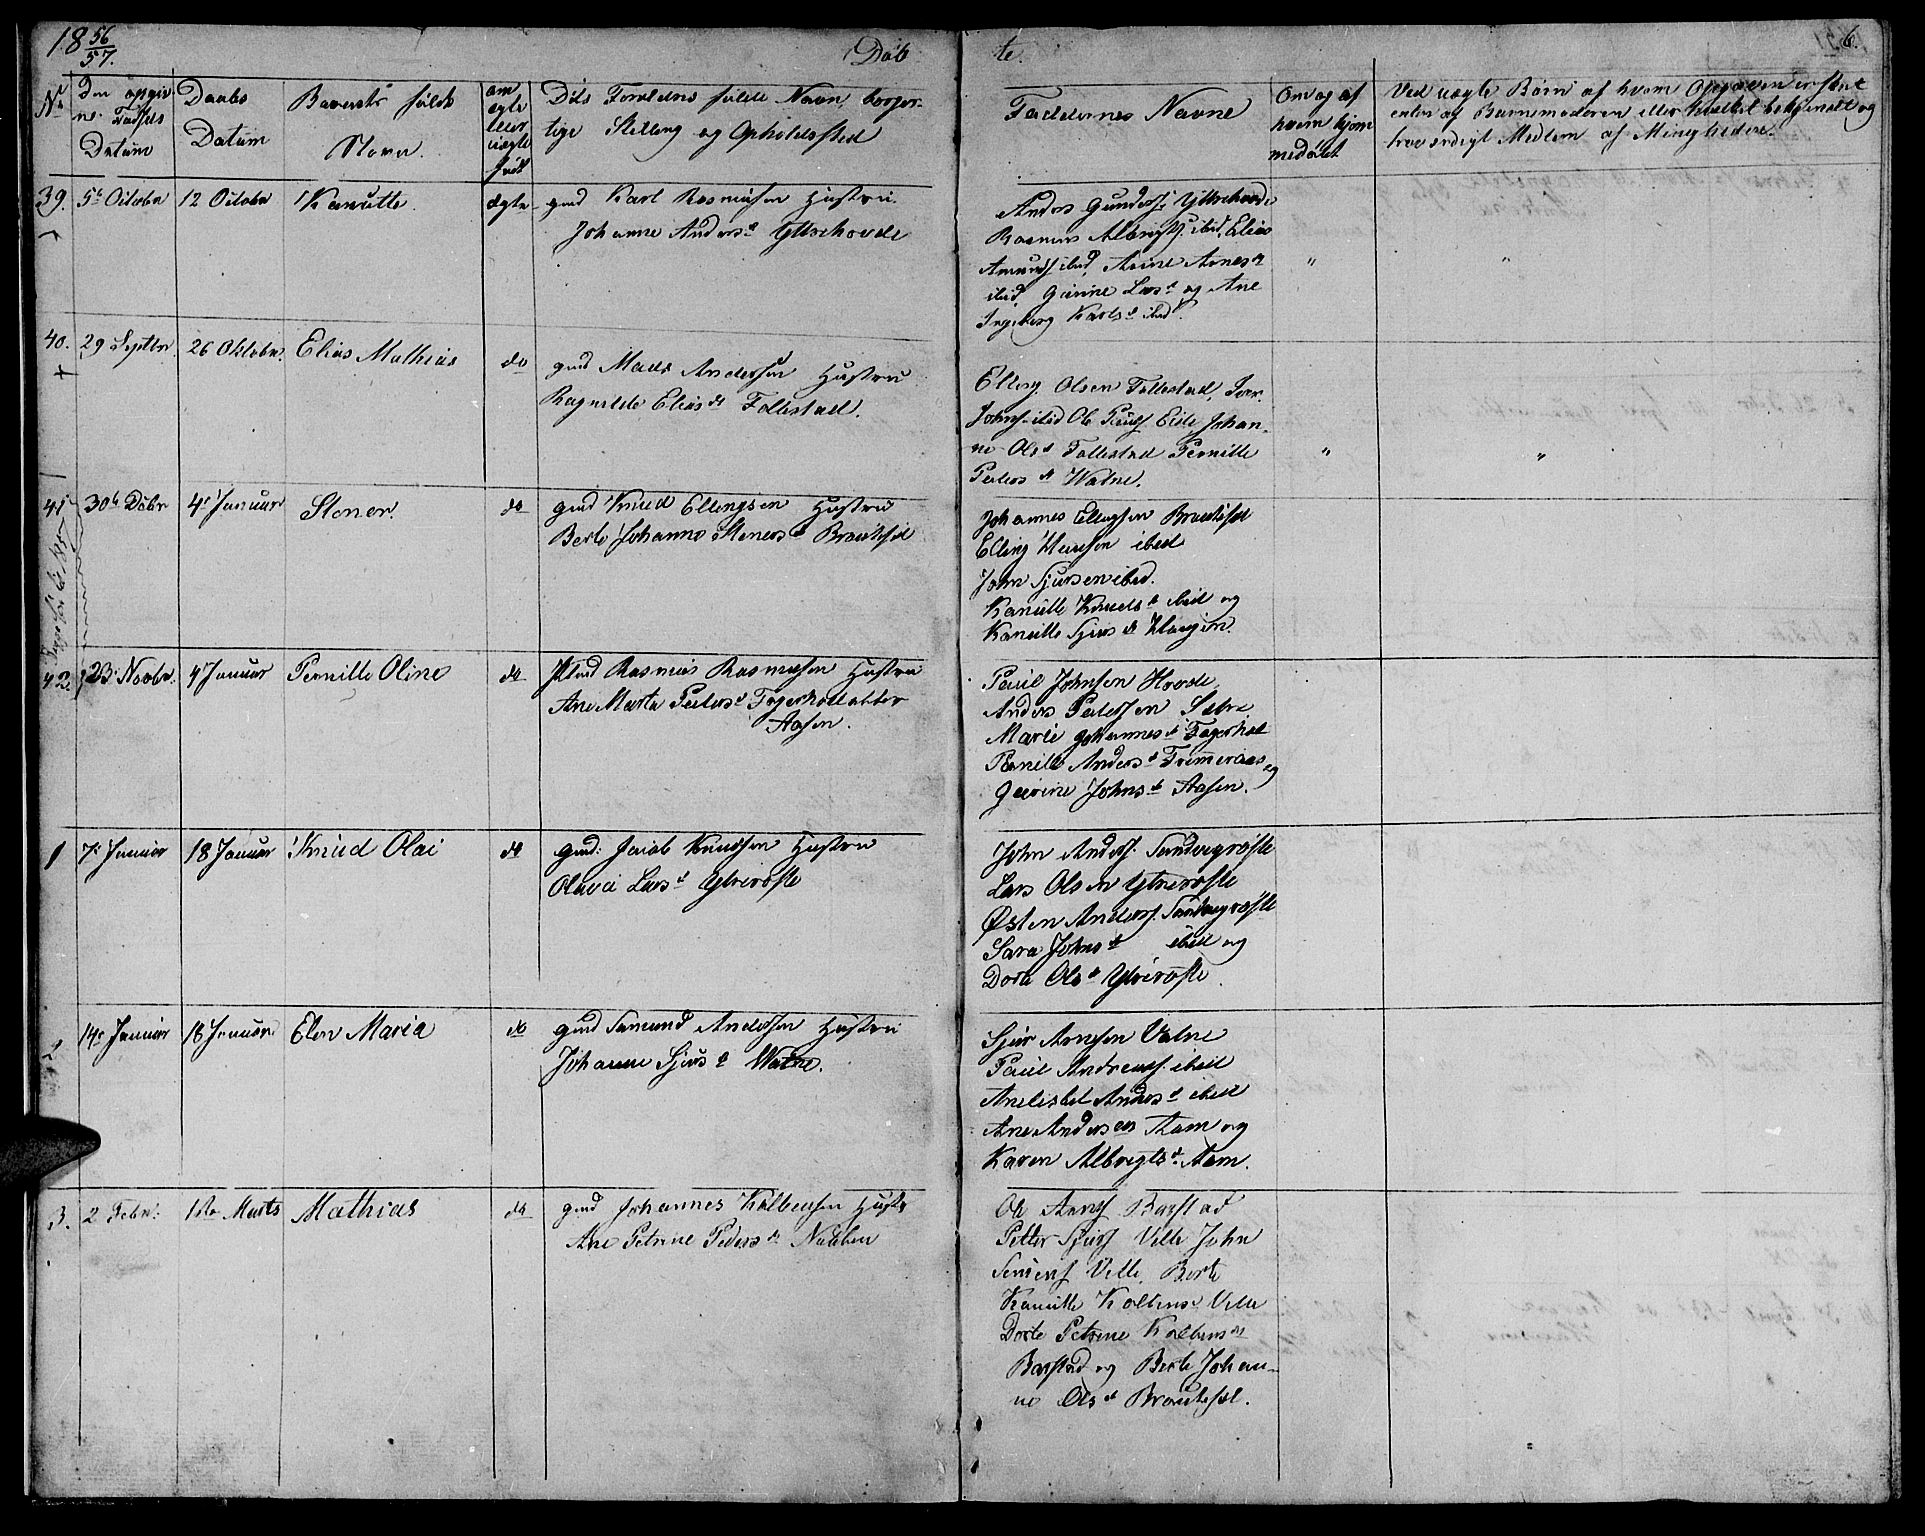 18 56/57. Døb te. 6.
No
Den opgivne Fødsels Datum
Daabs Datum
Barnets fulde Navn.
om ægte eller uægte født
Dets Forældres fulde Navn, borgerlige Stilling og Opholdssted
Faddernes Navne
Om og af hvem hjemmedøbt
Ved uægte Børn af hvem Opgaven er skeet enten af Barnemoderen eller bekjendt og troværdigt Medlem af Menigheden.
39. 5te Octobr 12 Octobr Kanutte ægte gmd Karl Rasmusen Hustru
Johanne Andersd Yttrehovde
Anders Gunders. Yttrehovde
Rasmus Albrigts. ibid, Elias
Amunds ibid, Arnesd
ibid, Gurine Larsd og Ane
Ingeborg Karlsd ibid.
40. 29 Septbr 26 Oktobr. Elias Mathias do gmd Mads Andersen Hustru
Ragnilde Eliasd Follestad.
Elling Olsen Follestad, Iver
Johns. ibid Ole Pauls. Eide Johan-
ne Olsd Follestad Pernille
Peders d Watne.
41 30te Debr 4de Januar Stener. do gmd Knud Ellingsen Hustru
Berte Johanne Stenersd Brautesæt
Johannes Ellingsen Brautesæt
Elling ibid
John Sjursen ibid.
Kanutte Knudsd ibid og
Kanutte Sjurs d Haugen.
42. 23 Novbr. 4 Januar Pernille Oline do Rasmus Rasmusen Hustru
Ane Marta Pedersd
Aasen.
Paul Johnsen Hovde
Anders Pedersen Sætre
Marie Johannesd Fagerhol
Pernille Andersd og
Gurine Johnsd Aasen.
1 7de Januar 18 Januar Knud Olai do gmd. Jacob Knudsen Hustru
Olava Larsd Ytrerøste
John Anders.
Lars Olsen Ytrerøste
Østen Anders.
Sara Johnsd ibid og
Dorte Olsd Ytrerøste.
2 14de Januar 18 Januar Elen Maria do gmd Amund Andersen Hustru
Johanne Sjursd Watne.
Sjur Arnesen Vatne
Paul Andreas. ibid
Anelisbet Andersd ibid
Ane Andersen Aam og
Karen Albregtsd. Aam.
3. 2 Febr. 1ste Marts Mathias do gmd Johannes Kolbensen Hustr
Ane Petrine Peders d
Ole Arnes Barstad
Petter Sjurs Velle John
Velle, Berte
Kanutte Kolbensd Velle
Dorte Petrine Kolbensd
Barstad og Berte Johan-
ne Olsd Brautesæt.